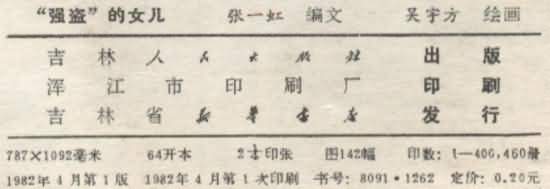 “强盗”的女儿 张一虹 编文 吴宇方 绘画
吉林人民出版社 出版
浑江市印刷厂 印刷
吉林省新华书店 发行
787×1092毫米 64开本 2¼印张 图142幅 印数：1—406,460册
1982年4月第1版 1982年4月第1次印刷 书号：8091·1262 定价：0.20元